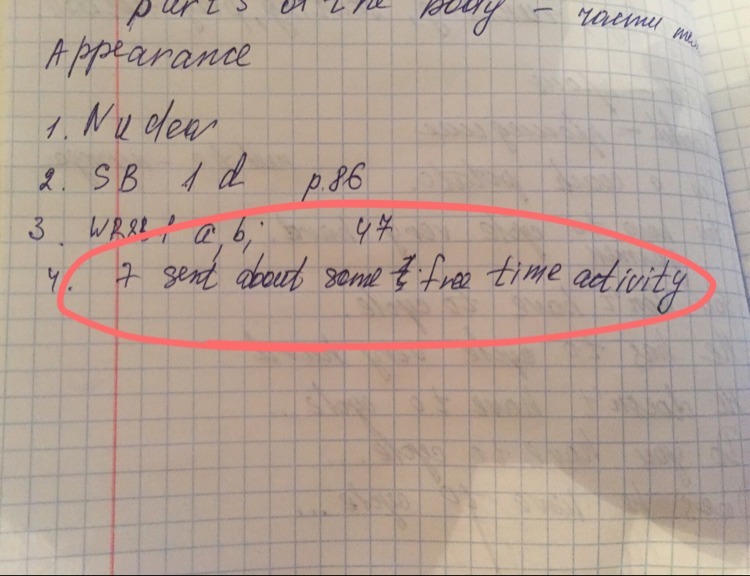 parts of the body - части те
Appearance
1. Nuclear
2. SB 1 d p.86
3. a, b; 47
4. 7 sent about some free time activity